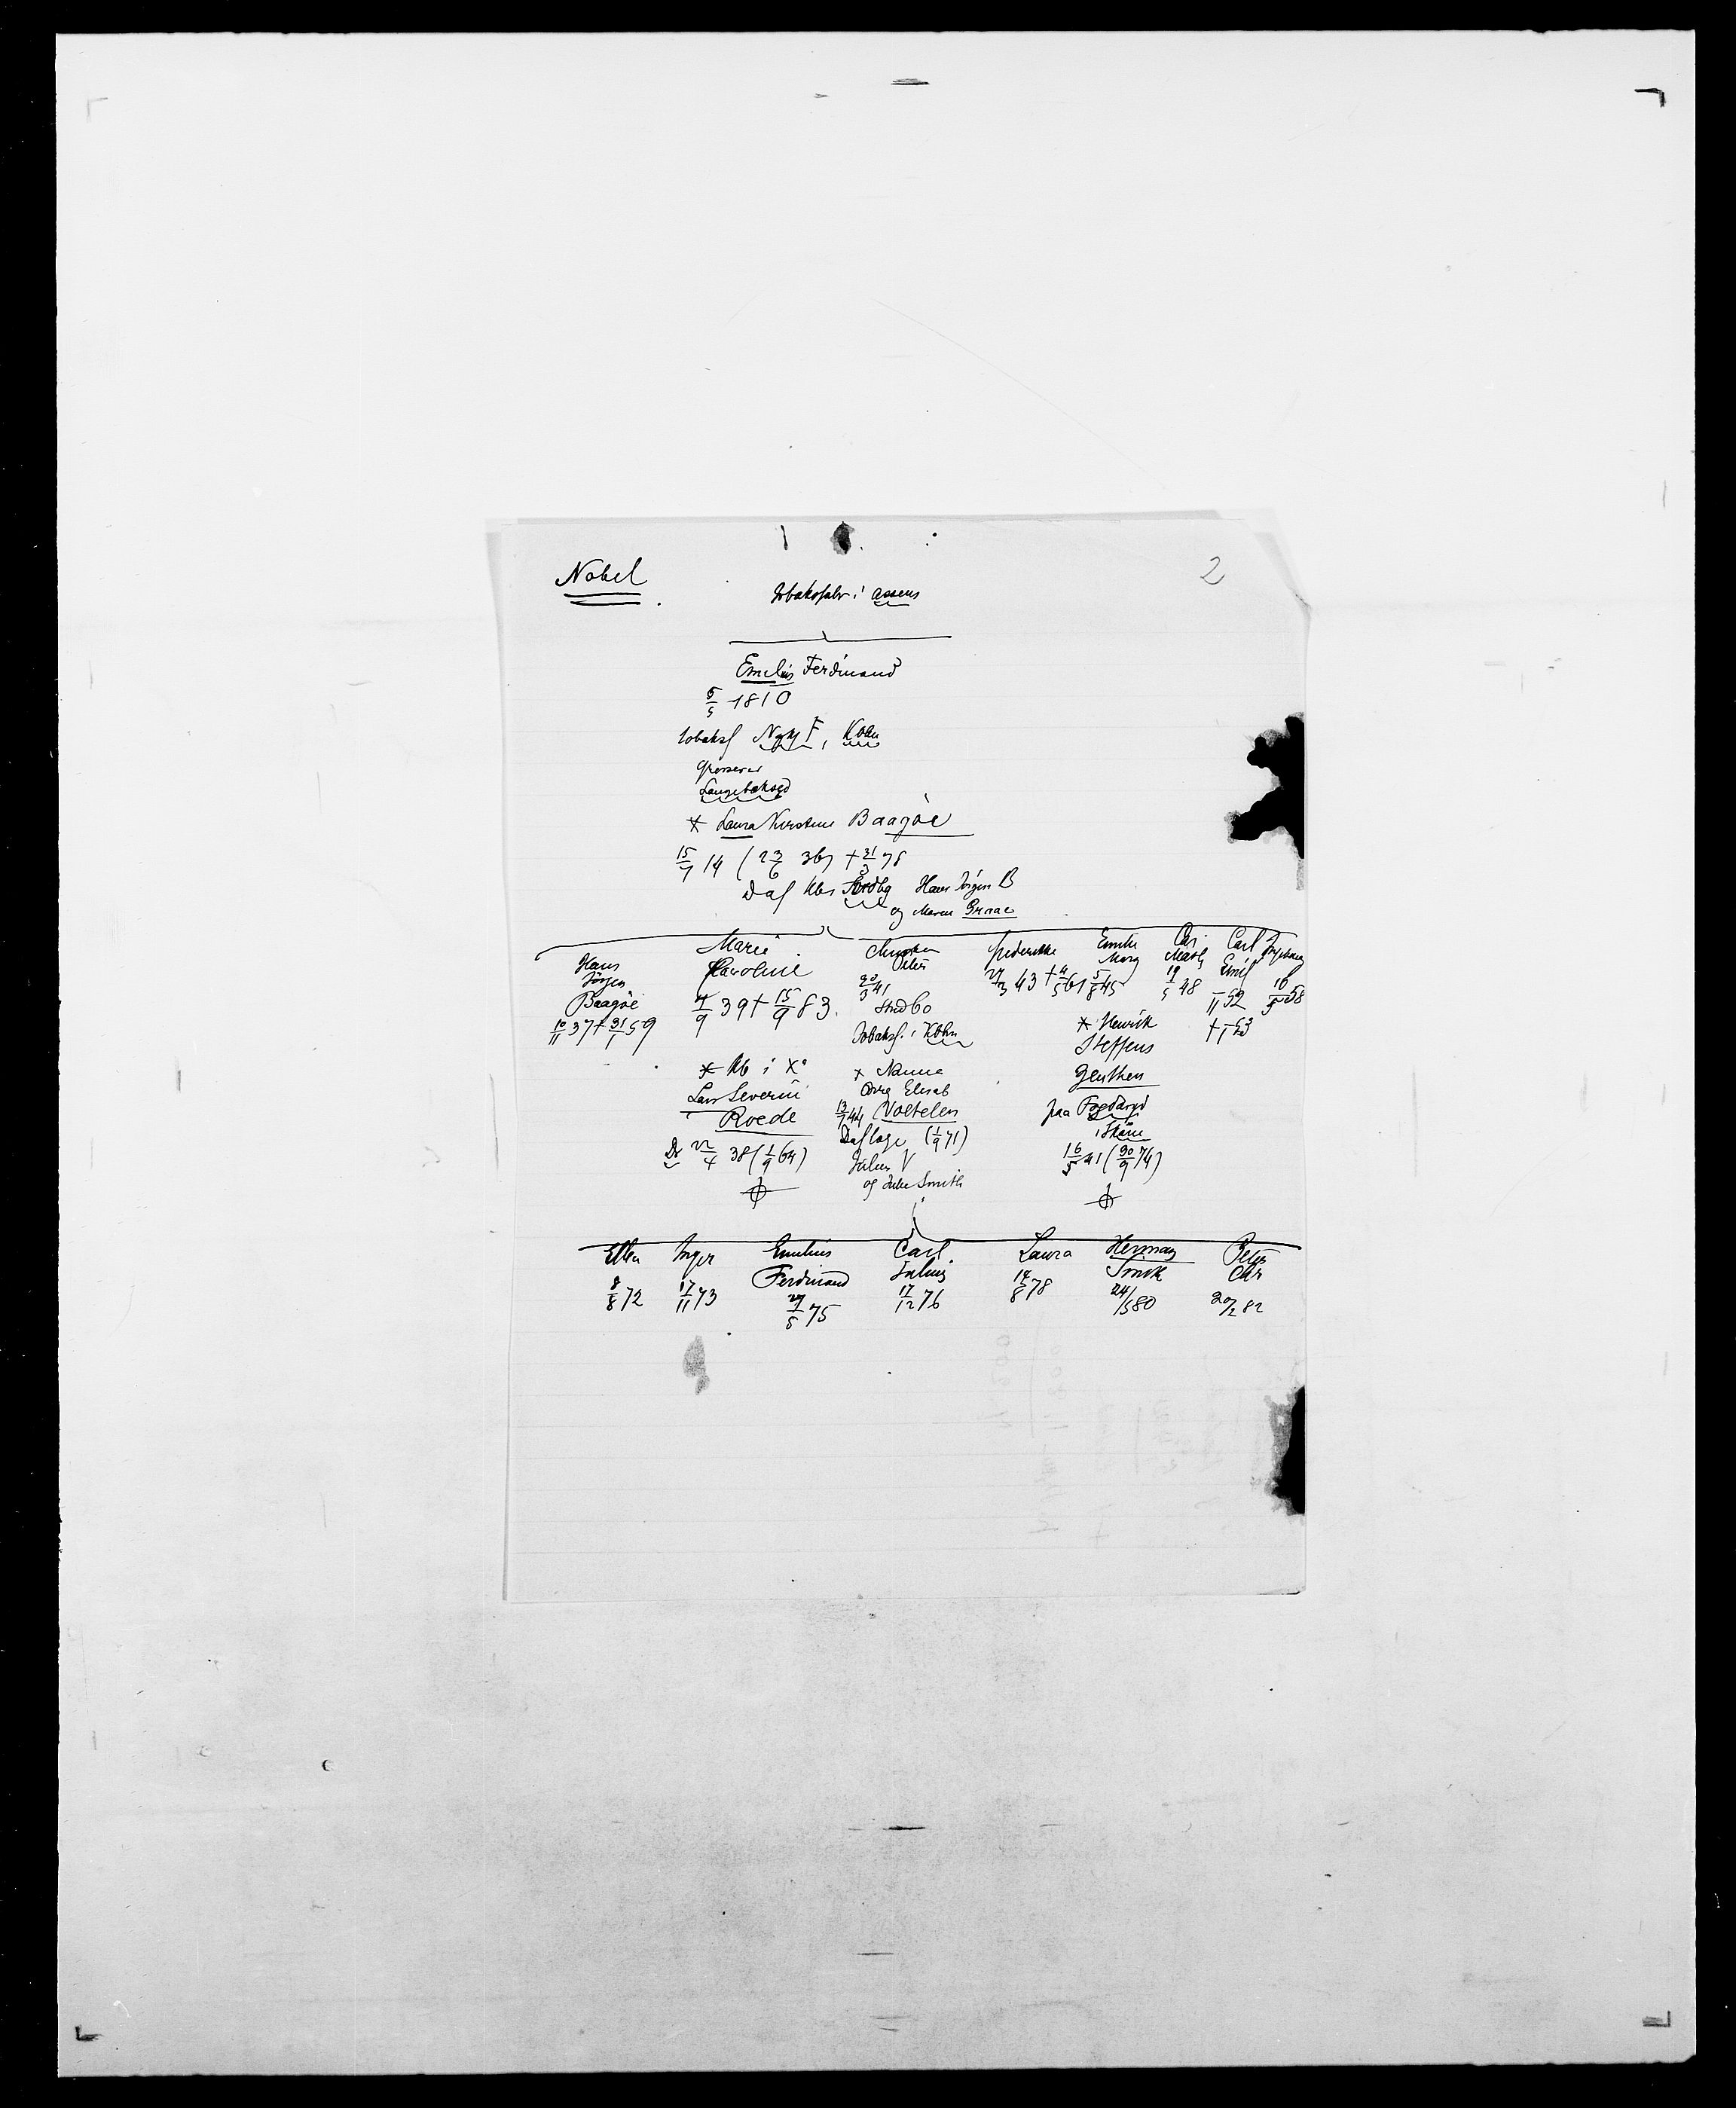 Nobel
2
Tobaksfabr i Assens
Emilius Ferdinand
5/5 1810
tobaksf Nykj F, Kbhn
Grosserer
Langebæksgd
* Laura Kirstine Baagøe
15/7 14 (23/6 36) + 31/3 78
Daf Kbs Hans Jörgen B
og Maren Graae
Hans
Jörgen
Baagøe
10/11 37 + 31/1 59
Marie
Karoline
4/9 39 + 15/9 83.
* Kb i X^a
Lars Severin
Roede
22/4 38 (1/9 64)
Christen
Peter
20/3 41
Stud 60
Tobaksf. i Kbhn
* Nanna
Elisab
13/7 44 Voetelen
Daf (1/9 71)
Julius V
og Julie Smith
Frederikke
27/3 43 + 4/5 61
Emilie
Marg
5/8 45
* Henrik
Steffens
Genthen
paa
i Skåne
16/5 41 (30/9 74)
Chr
19/5 48
Carl
Emil
11 52
+ 53
Ingeborg
16/5 58
Ellen
8/8 72
Inger
17/11 73
Emilius
Ferdinand
27/5 75
Carl
Julius
17/12 76
Laura
14/8 78
Herman
Smith
24/5 80
Peter
Chr
20/2 82